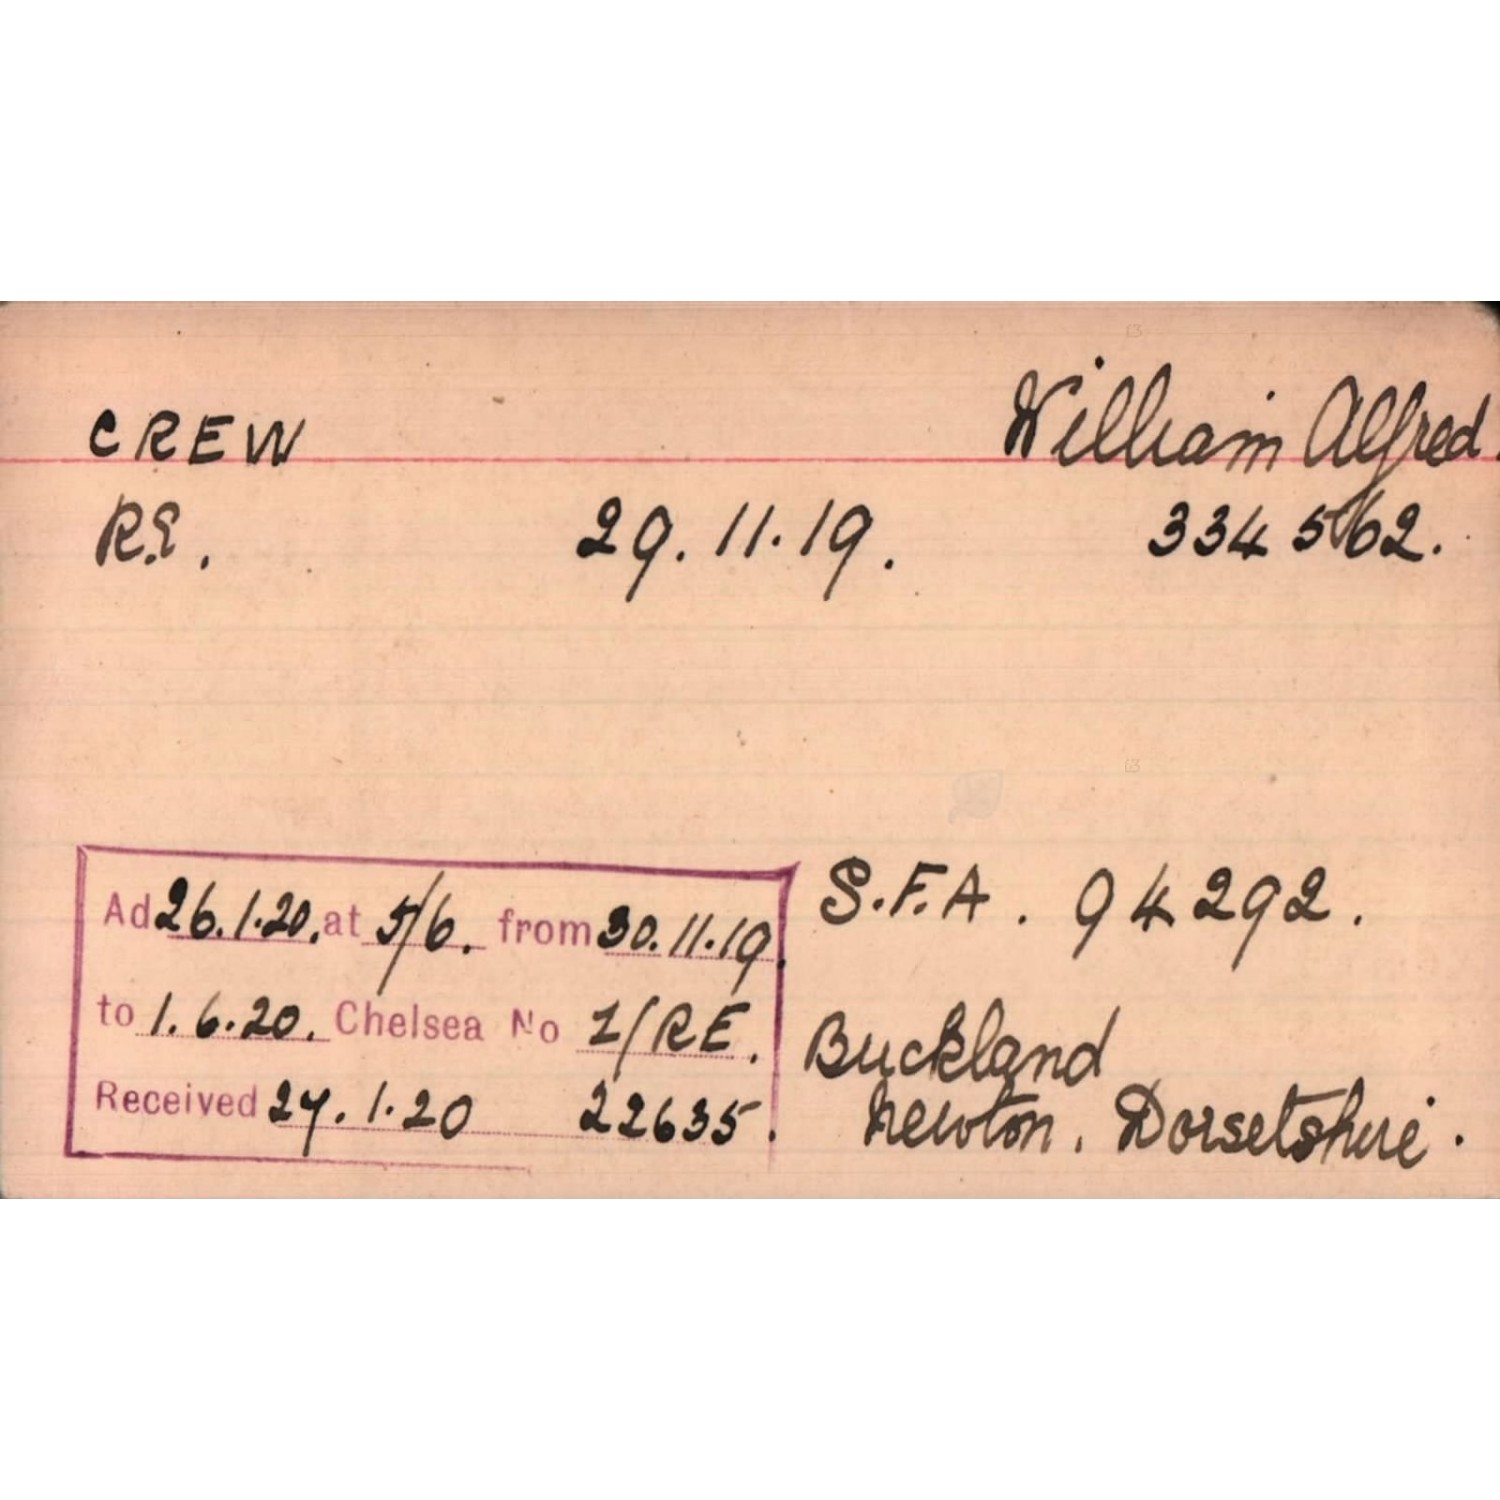 CREW William Alfred.
R.E. 29.11.19. 334562.
Ad 26.1.20. at 5/6. from 30.11.19.
to 1.6.20. Chelsea No 1/RE.
Received 27.1.20 22635.
S.F.A. 94292.
Buckland
Newton, Dorsetshire.